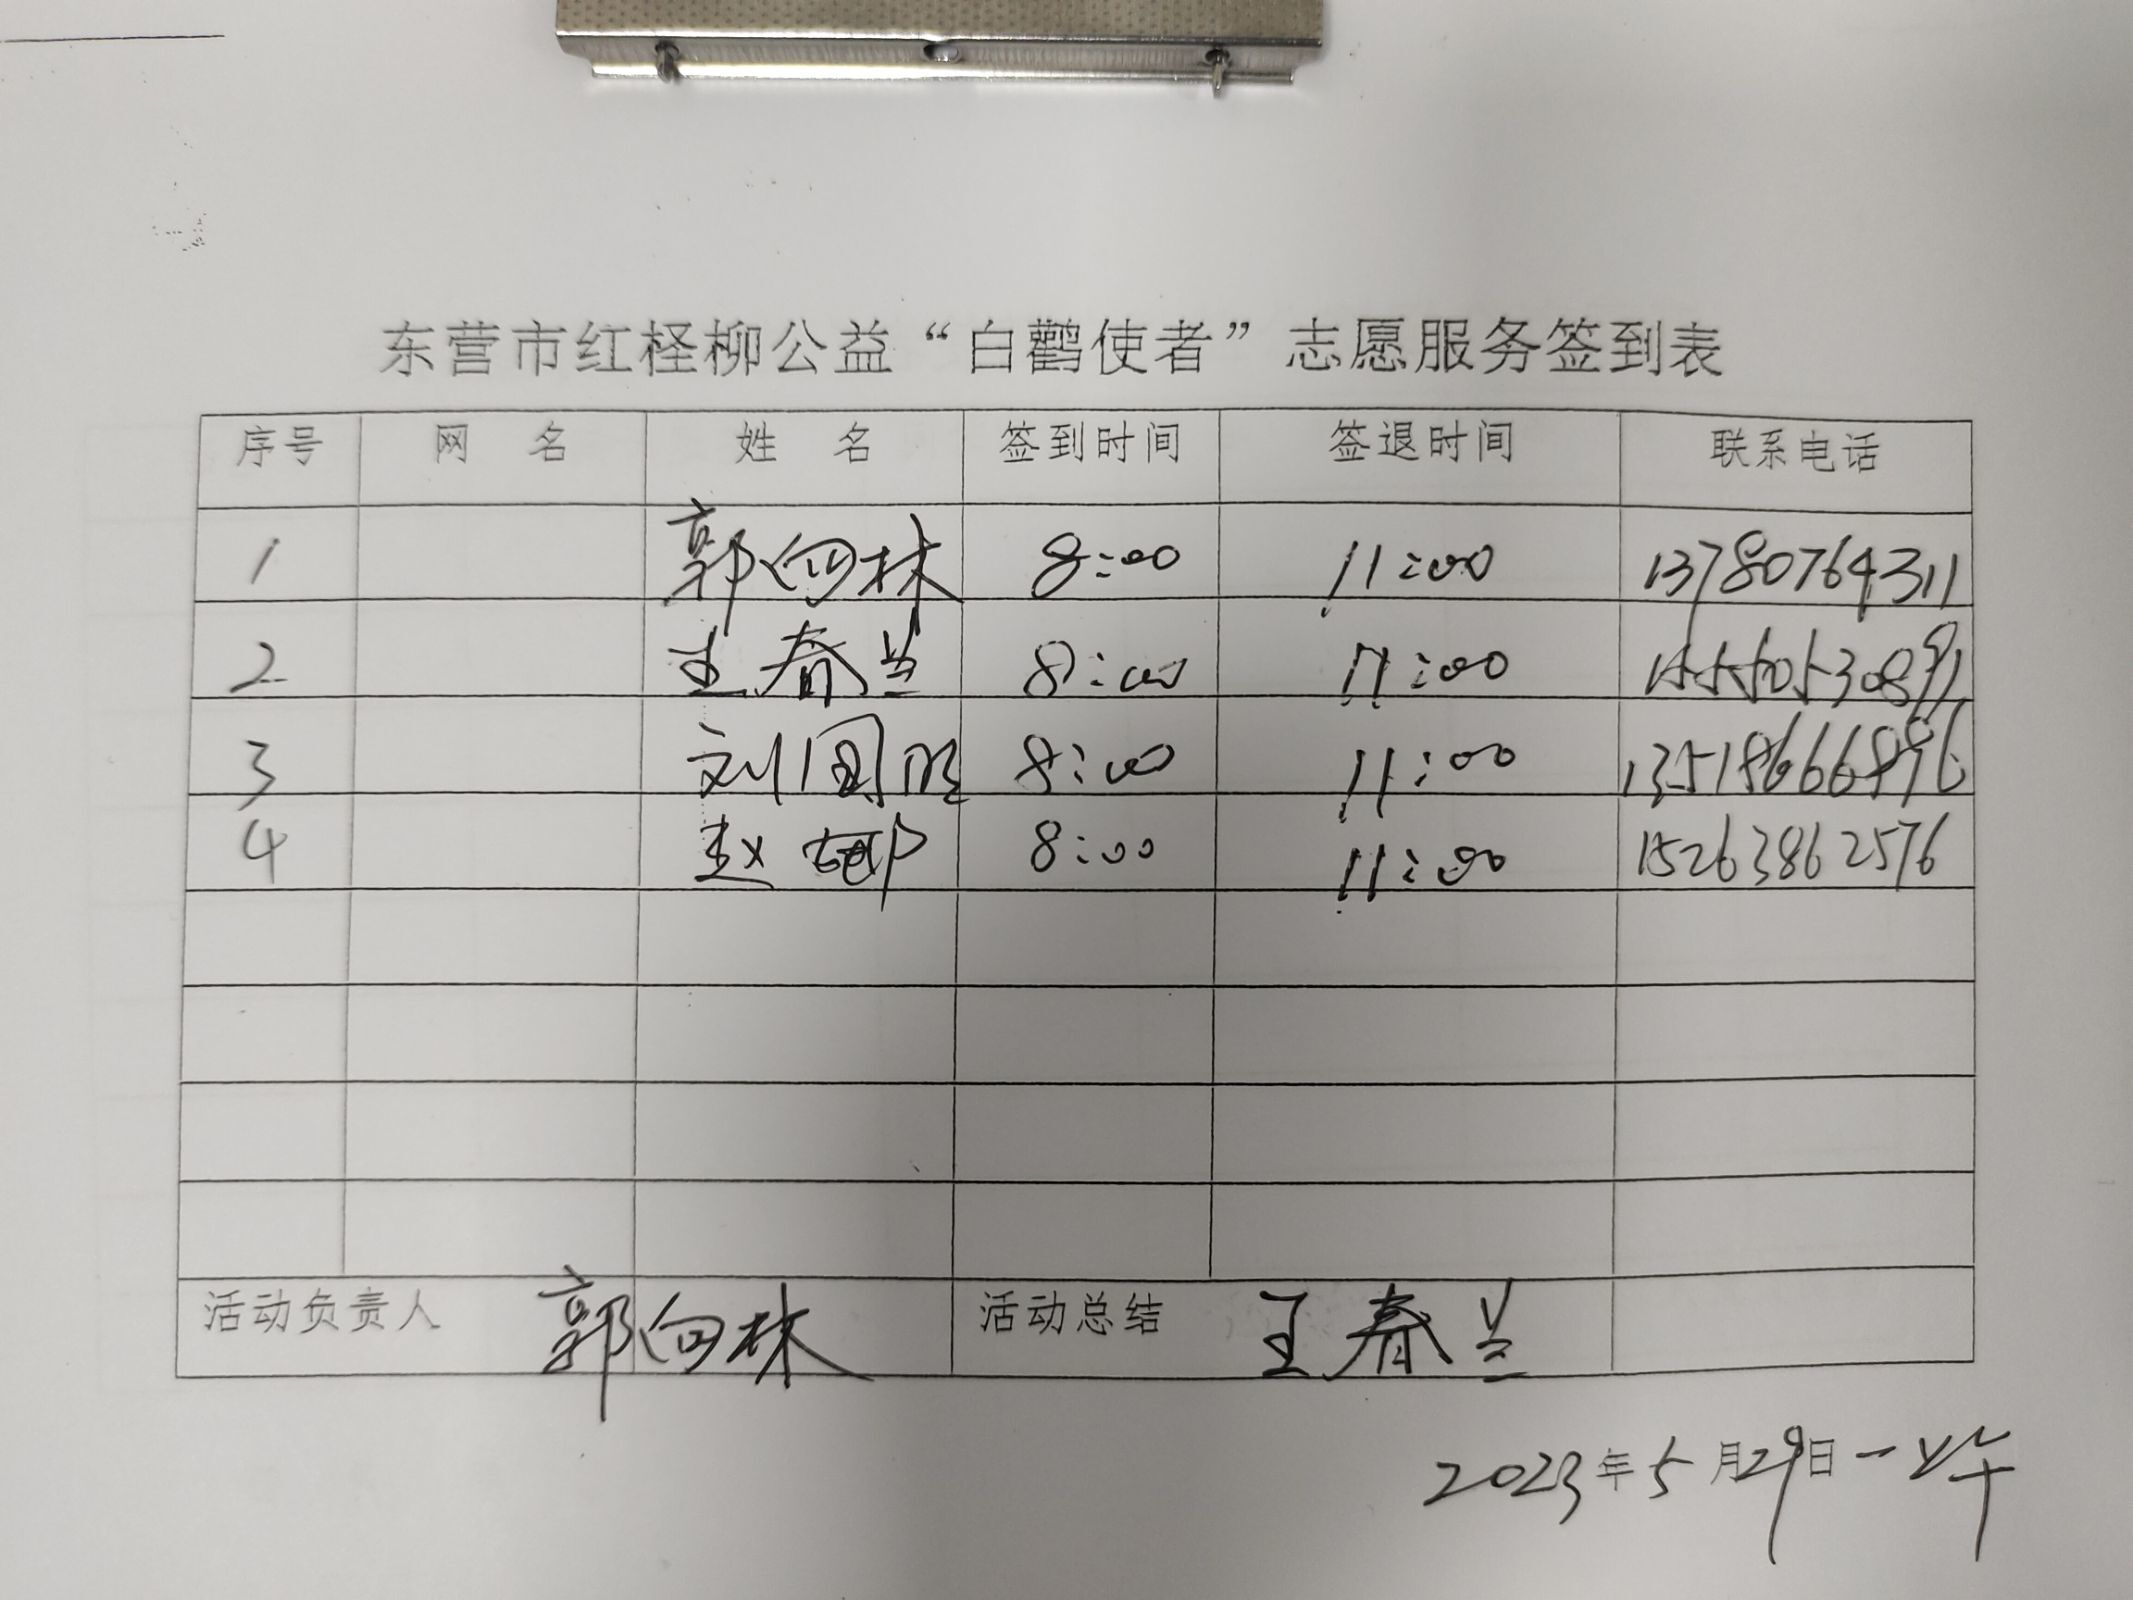 东营市红柽柳公益“白鹳使者”志愿服务签到表
序号 网 名 姓 名 签到时间 签退时间 联系电话
1 郭向林 8:00 11:00 13780764311
2 王春兰 8:00 11:00 15550530891
3 刘国 8:00 11:00 13518666896
4 赵 8:00 11:00 15263862576
活动负责人 郭向林 活动总结 王春兰
2023年5月29日一上午